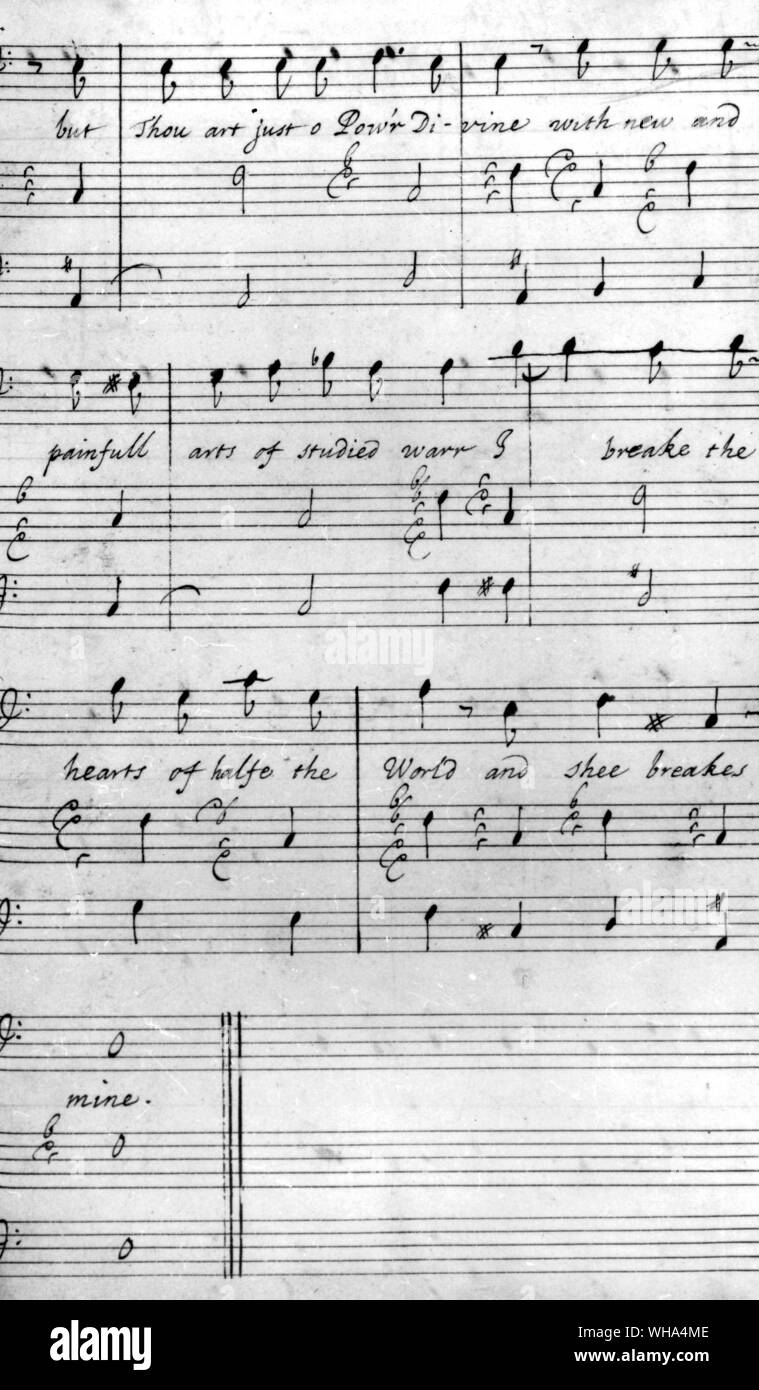 but Thou art just o Pow'r Di-vine with new and
painfull arts of studied warr I breake the
hearts of halfe the World and shee breakes
mine.
a alamy a
alamy
Image ID: WHA4ME
www.alamy.com